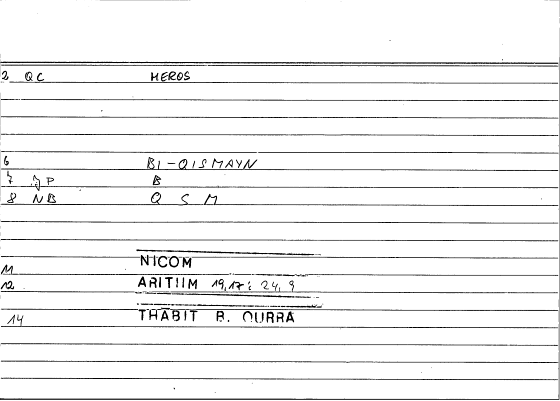 2 QC MEROS
6 BI-QISMAYN
7 JP B
8 NB Q S M
11 NICOM
12 ARITIIM 19,17; 24, 9
14 THABIT B. QURRA